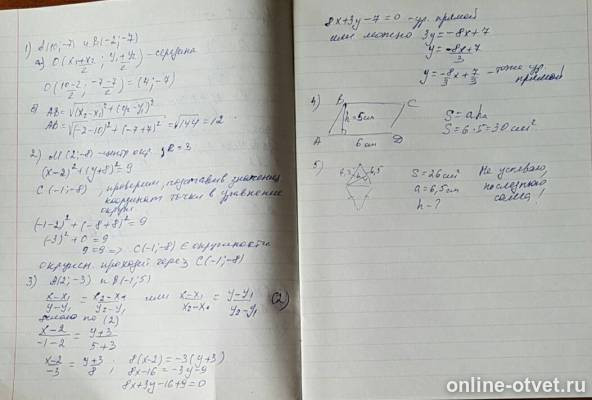 1) A(10;-7) и B(-2;-7)
а) O(x₁+x₂/2; y₁+y₂/2) - середина
O(10-2/2; -7-7/2) = (4;-7)
б) AB=√(x₂-x₁)²+(y₂-y₁)²
AB=√(-2-10)²+(-7+7)² = √144 = 12
2) M(2;-8) - центр окр. R=3
(x-2)²+(y+8)²=9
C(-1;-8), проверим, подставив значения
координат точки в уравнение
окруж
(-1-2)²+(-8+8)²=9
(-3)²+0=9
9=9 => C(-1;-8) ∈ окружности
окружн. проходит через C(-1;-8)
3) A(2;-3) и B(-1;5)
x-x₁/y-y₁ = x₂-x₁/y₂-y₁ или x-x₁/x₂-x₁ = y-y₁/y₂-y₁ (2)
по (2)
x-2/-1-2 = y+3/5+3
x-2/-3 = y+3/8; 8(x-2)=-3(y+3)
8x-16=-3y-9
8x+3y-16+9=0
8x+3y-7=0 - ур. прямой
или можно 3y=-8x+7
y=-8x+7/3
y=-8/3x+7/3 - тоже ур.
прямой
4) B C
h=5см S=a·ha
S=6·5=30 см²
A D
6 см
5)
6,5 S=26см² Не успеваю,
a=6,5см
h-?
online-otvet.ru